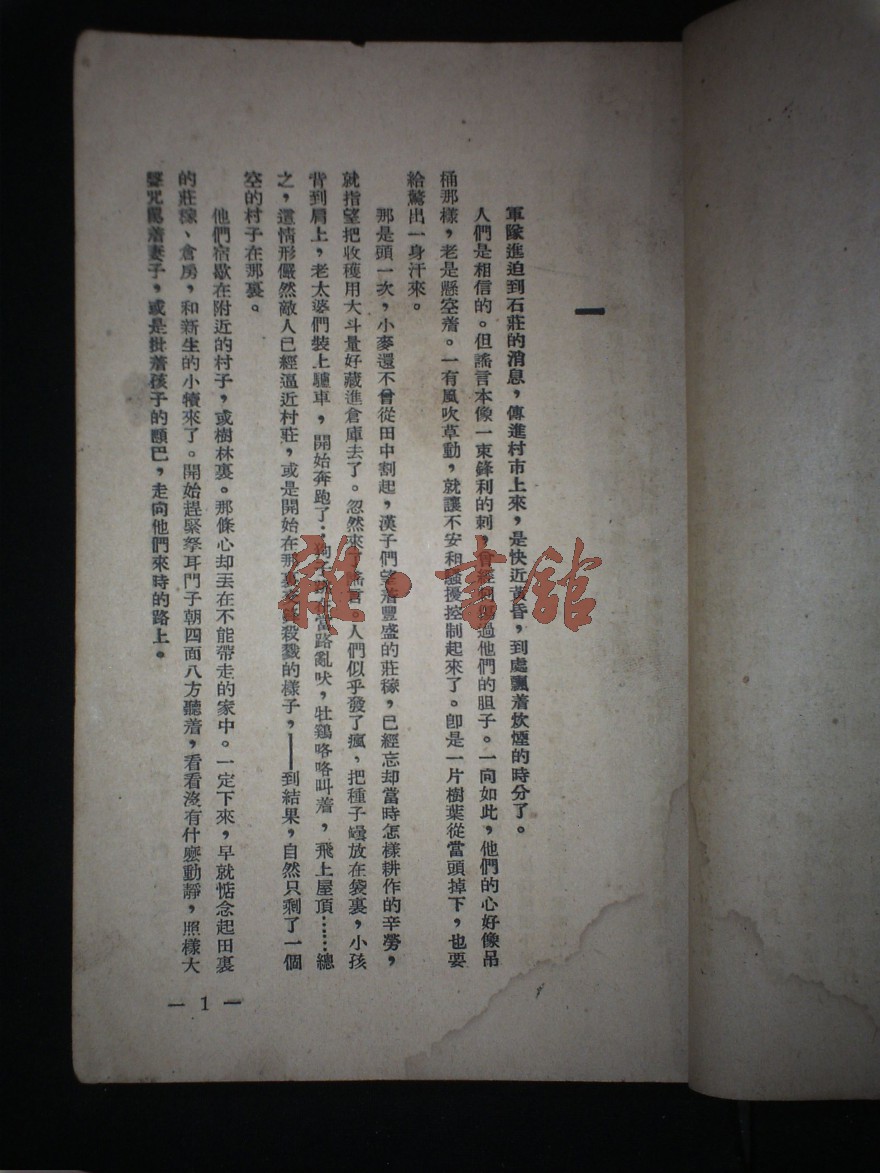 一
軍隊進迫到石莊的消息，傳進村市上來，是快近黃昏，到處飄着炊煙的時分了。
人們是相信的。但謠言本像一束鋒利的刺，曾經刺傷過他們的胆子。一向如此，他們的心好像吊
桶那樣，老是懸空着。一有風吹草動，就讓不安和騷擾控制起來了。卽是一片樹葉從當頭掉下，也要
給驚出一身汗來。
那是頭一次，小麥還不曾從田中割起，漢子們望着豐盛的莊稼，已經忘却當時怎樣耕作的辛勞，
就指望把收穫用大斗量好藏進倉庫去了。忽然來了謠言。人們似乎發了瘋，把種子放在袋裏，小孩
背到肩上，老太婆們裝上驢車，開始奔跑了：狗子當路亂吠，牡鷄咯咯叫着，飛上屋頂……總
之，這情形儼然敵人已經逼近村莊，或是開始在那裏殺戮的樣子，——到結果，自然只剩了一個
空的村子在那裏。
他們宿歇在附近的村子，或樹林裏。那條心却丟在不能帶走的家中。一定下來，早就惦念起田裏
的莊稼、倉房，和新生的小犢來了。開始趕緊祭耳門子朝四面八方聽着，看看沒有什麼動靜，照樣大
聲咒罵着妻子，或是批着孩子的頤巴，走向他們來時的路上。
— 1 —
雜·書館